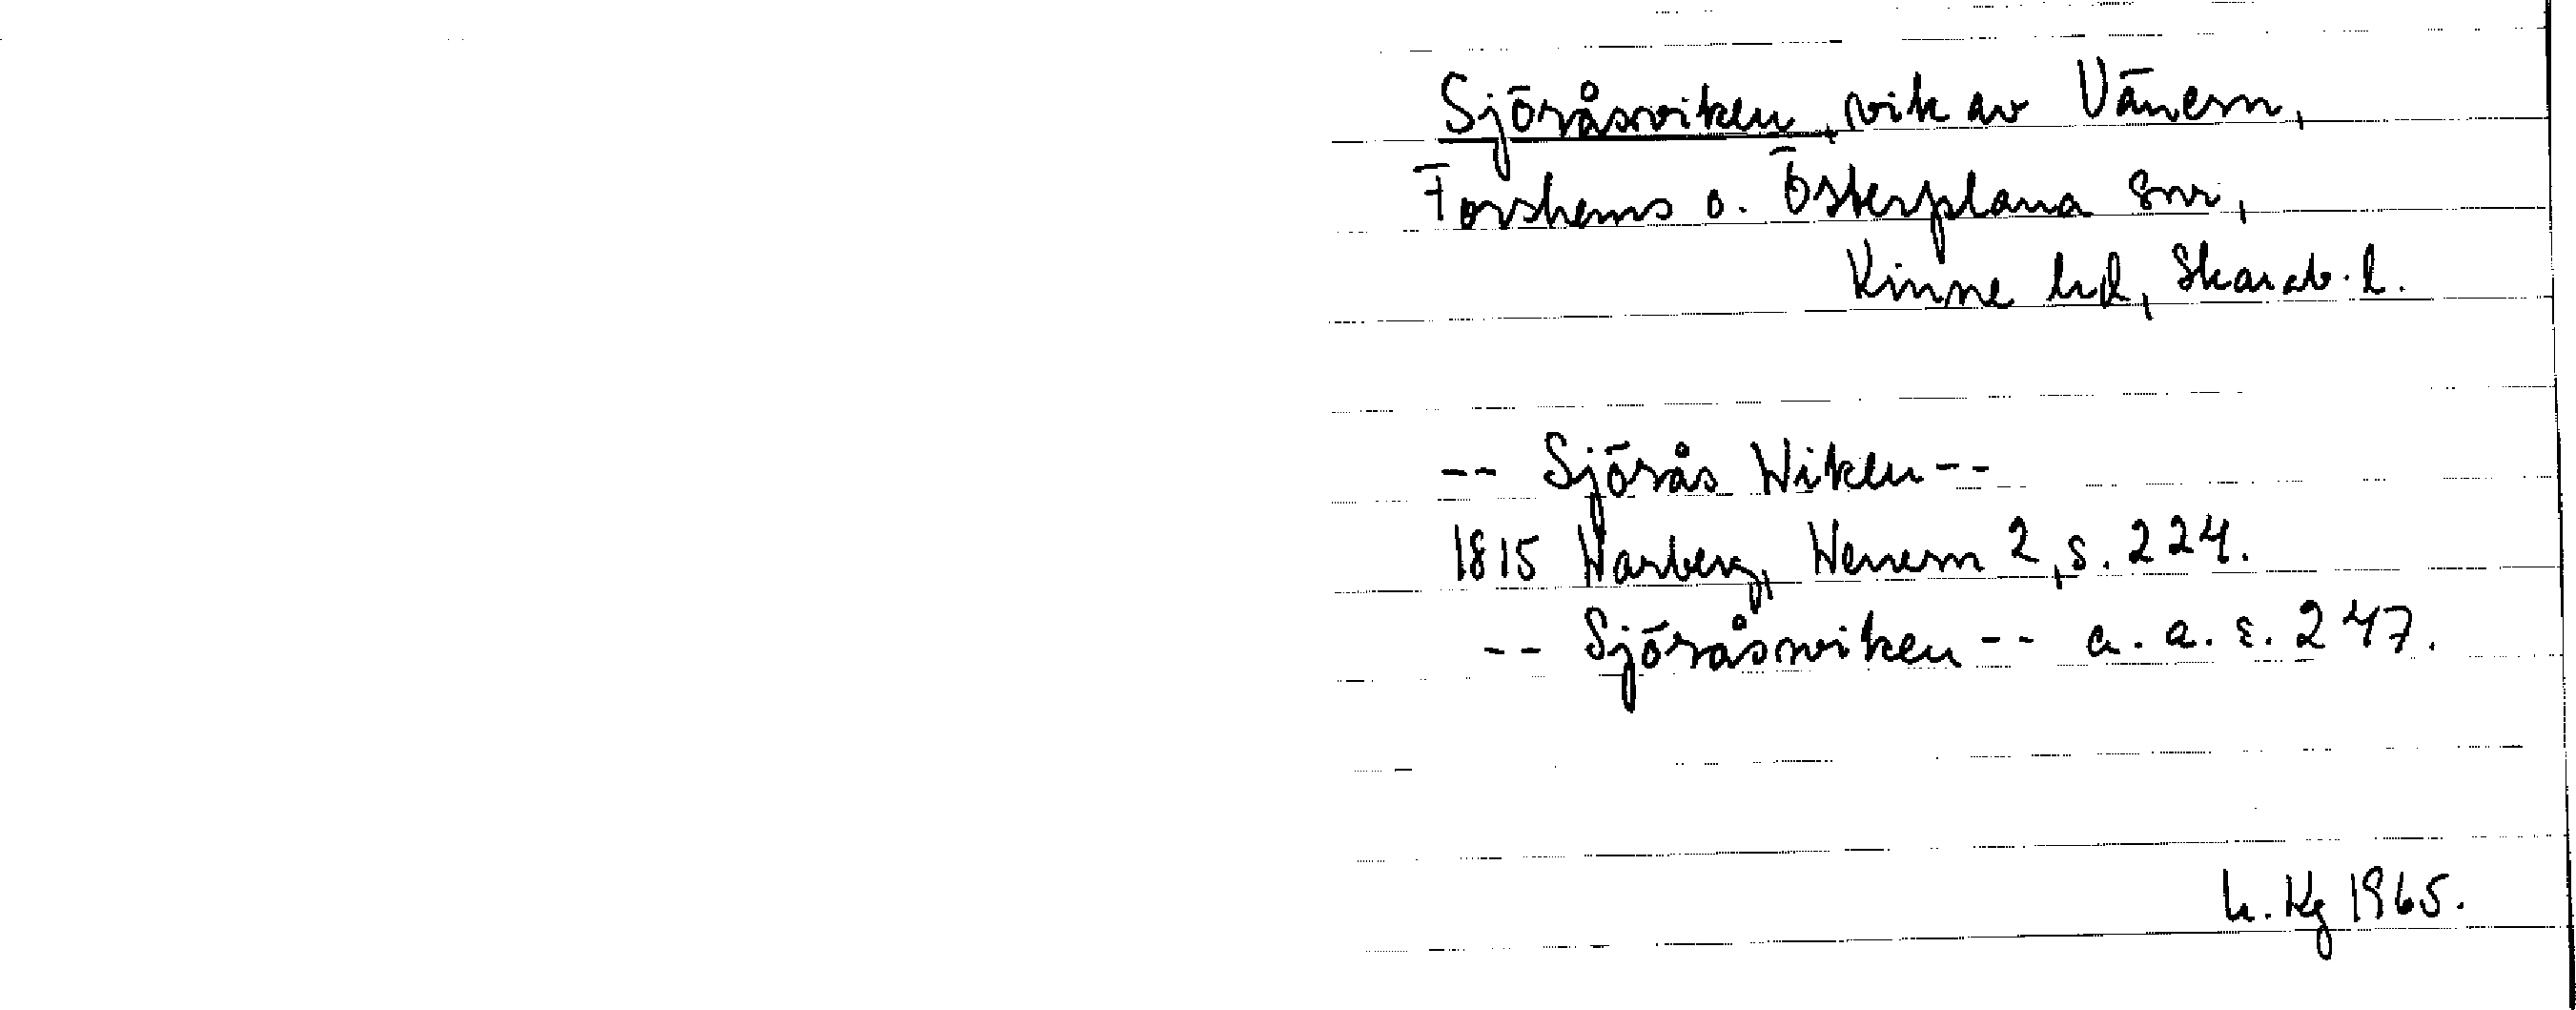 Sjöråsviken, vik av Vänern,
Forshems o. Österplana snr,
Kinne hd, Skarab. l.
-- Sjörås Wiken --
1815 Warberg, Wenern 2, s. 224.
-- Sjöråsviken -- a. a. s. 247.
h. Kg 1965.